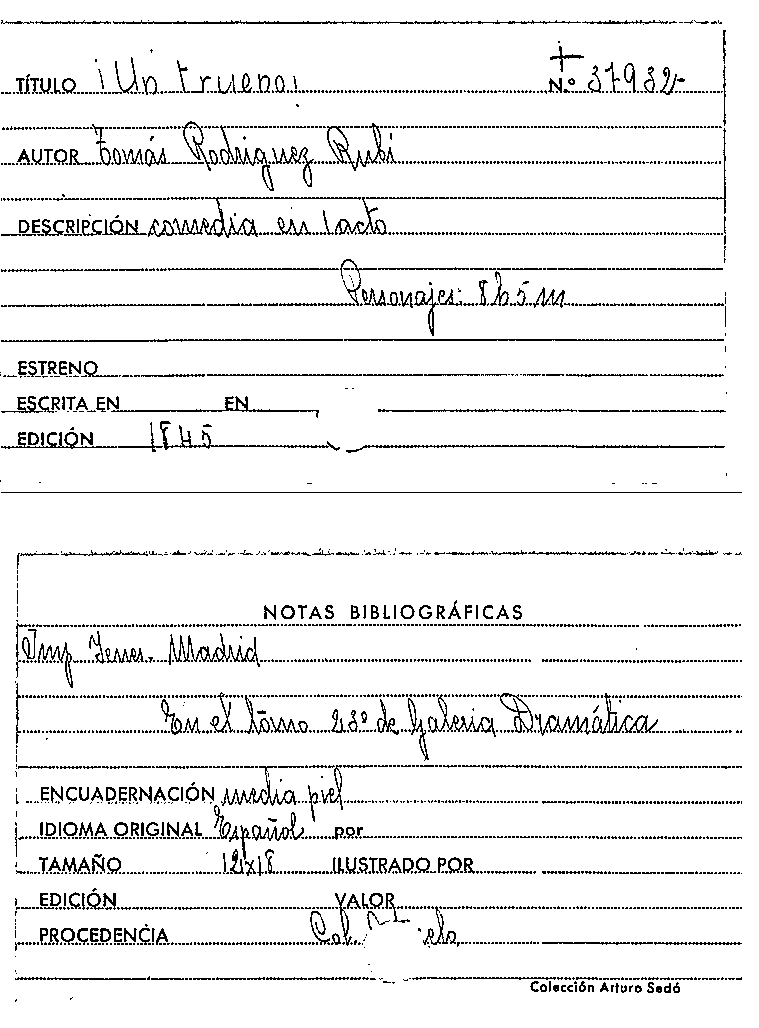 TÍTULO ¡Un trueno! N.º 37932-
AUTOR Tomás Rodriguez Rubí
DESCRIPCIÓN comedia en 1 acto
Personajes: 8 h 5 m
ESTRENO
ESCRITA EN EN
EDICIÓN 1845
NOTAS BIBLIOGRÁFICAS
Imp Madrid
En el tomo 23º de Galeria Dramática
ENCUADERNACIÓN media piel
IDIOMA ORIGINAL Español por
TAMAÑO 12x18 ILUSTRADO POR
EDICIÓN VALOR
PROCEDENCIA Col.
Colección Arturo Sedó